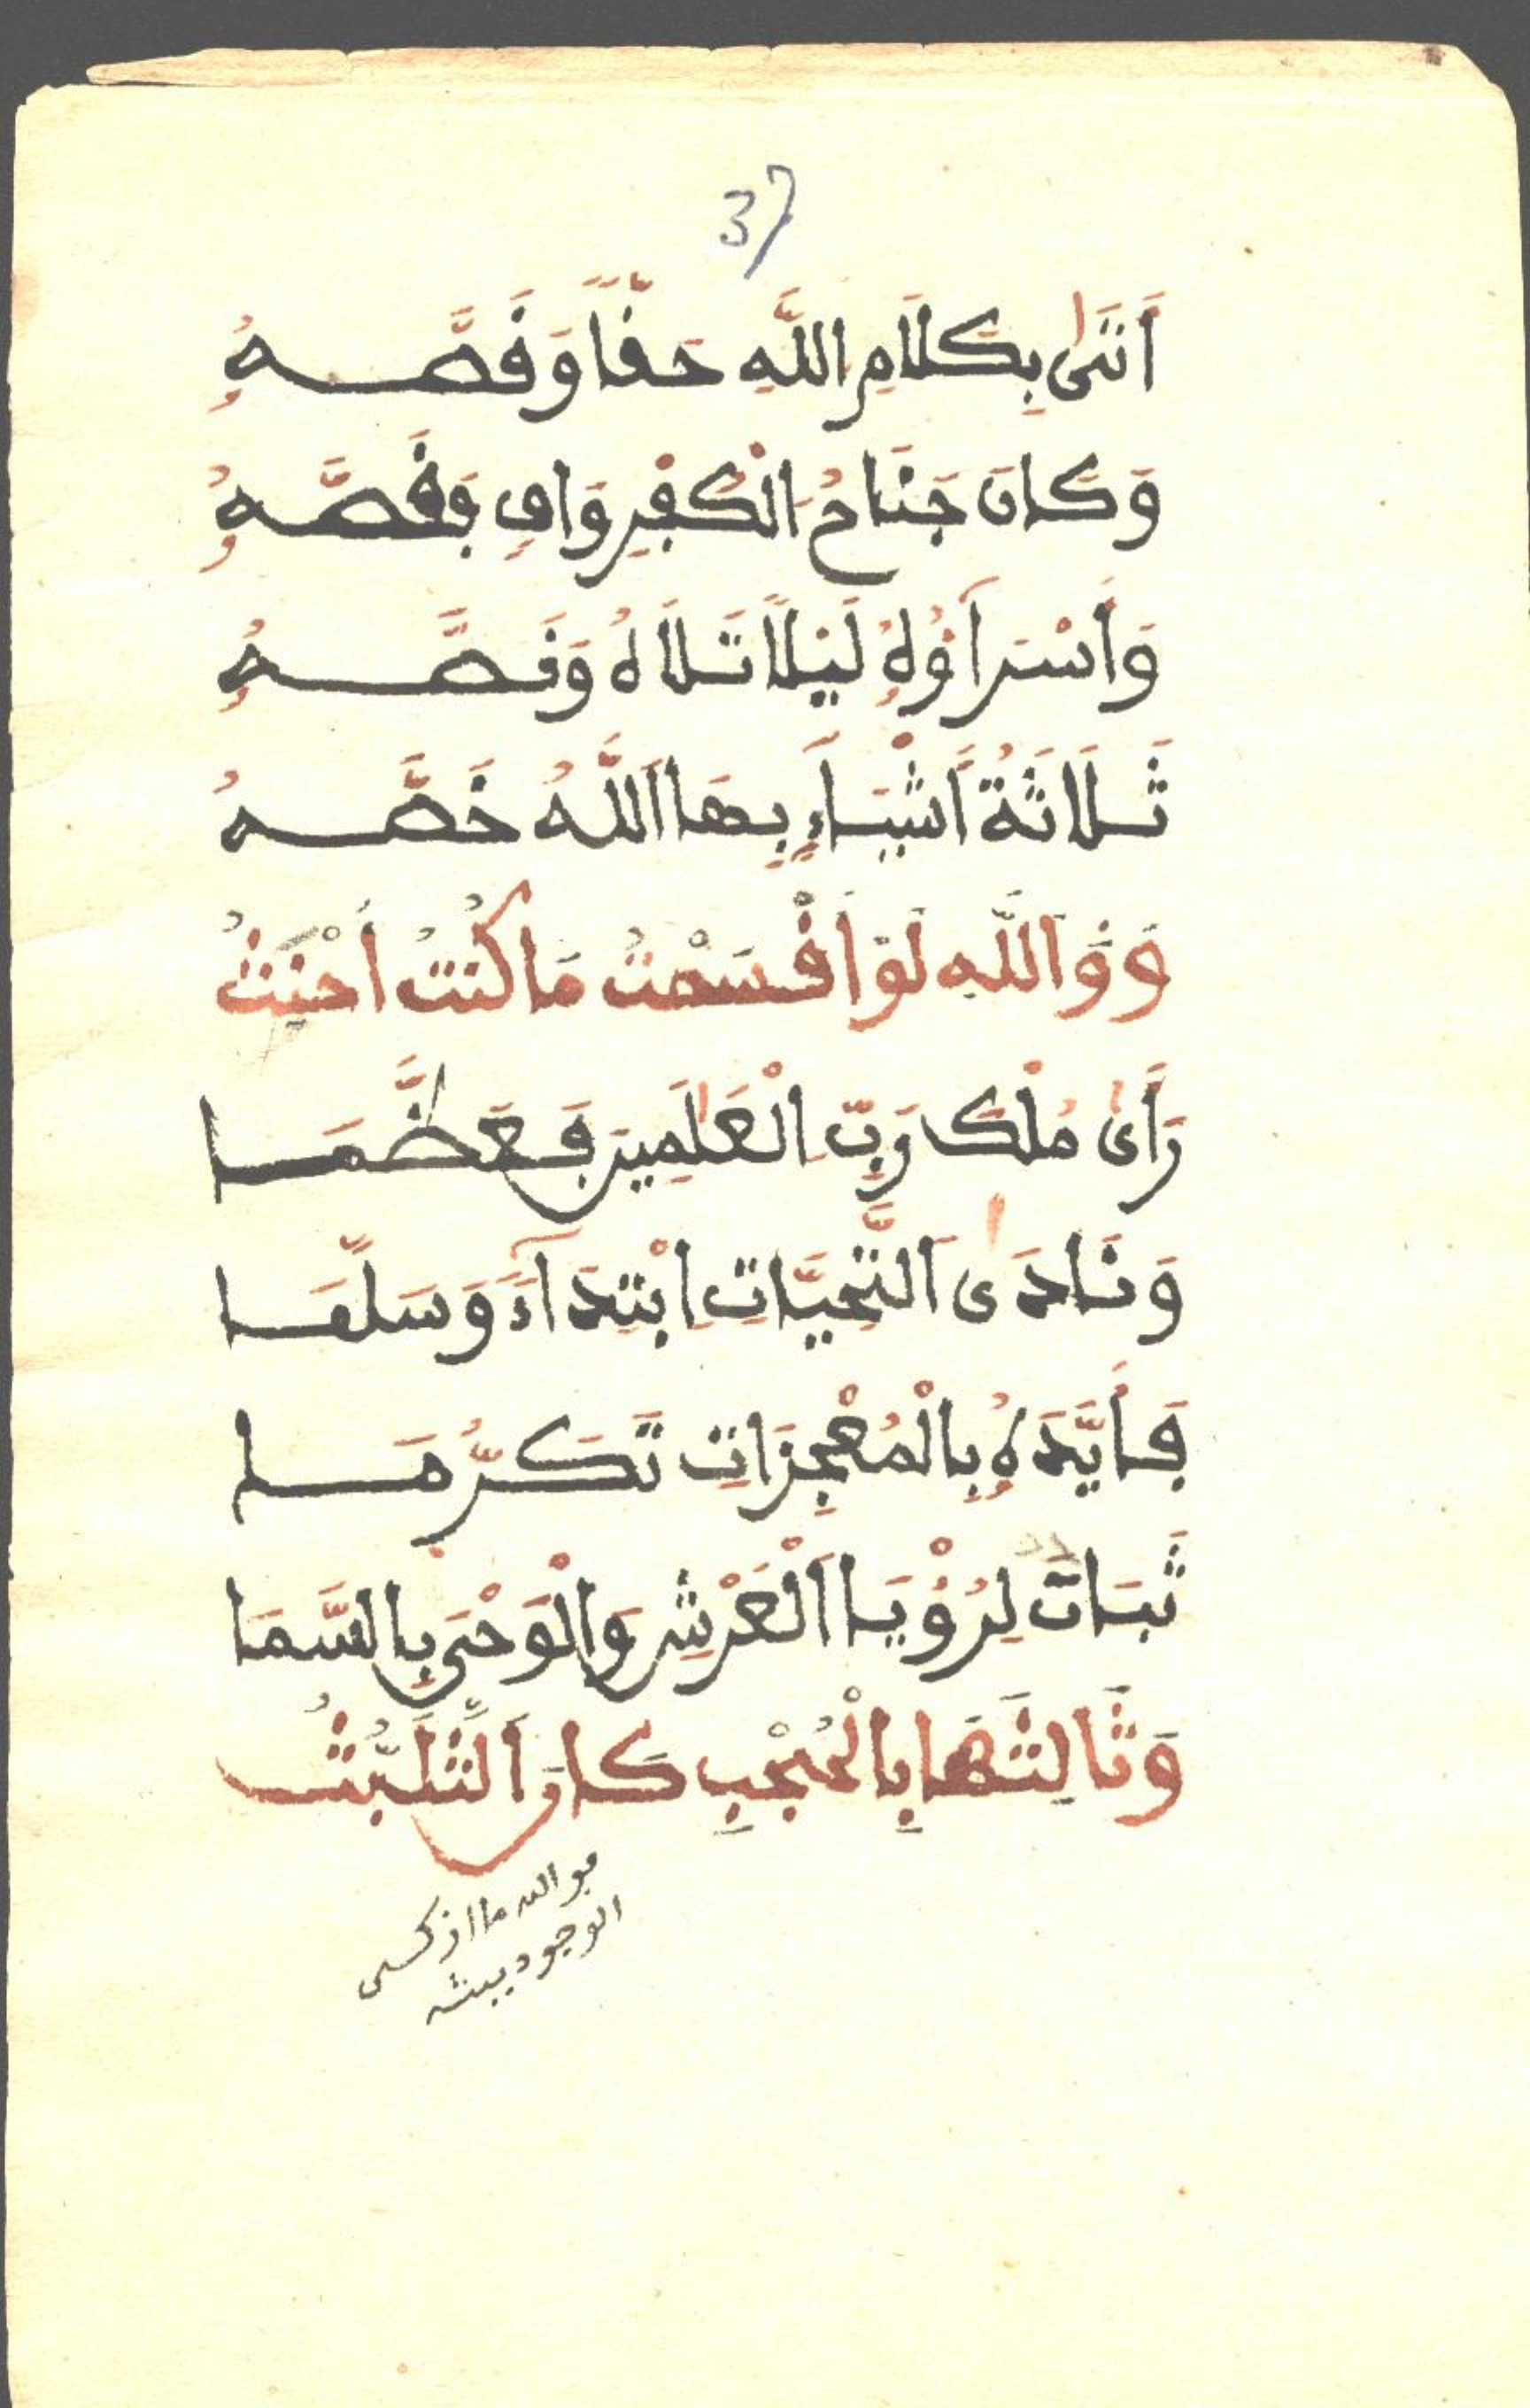 37
أَتَىٰ بِكَلَامِ اللَّهِ حَقّاً وَقَصَّهُ
وَكَانَ جَنَاحُ الْكُفْرِ وَافٍ فَقَصَّهُ
وَأَسْرَآؤُهُ لَيْلاً تَلَاهُ وَنَصَّهُ
ثَلَاثَةُ أَشْيَآءٍ بِهَا اَللَّهُ خَصَّهُ
وَوَاللَّهِ لَوْ أَقْسَمْتُ مَا كُنْتُ أَحْنَثُ
رَأَىٰ مُلْكَ رَبِّ الْعَٰلَمِينَ فَعَظَّمَا
وَنَادَى اَلتَّحِيَّاتِ ابْتِدَآءً وَسَلَّمَا
فَأَيَّدَهُ بِالْمُعْجِزَاتِ تَكَرُّمَا
ثَبَاتٌ لِرُؤْيَا اَلْعَرْشِ وَالْوَحْيِ بِالسَّمَا
وَثَالِثَهَا بِالْحُجْبِ كَانَ اَلتَّلَبُّثُ
فو الله ما ازكى
الوجود